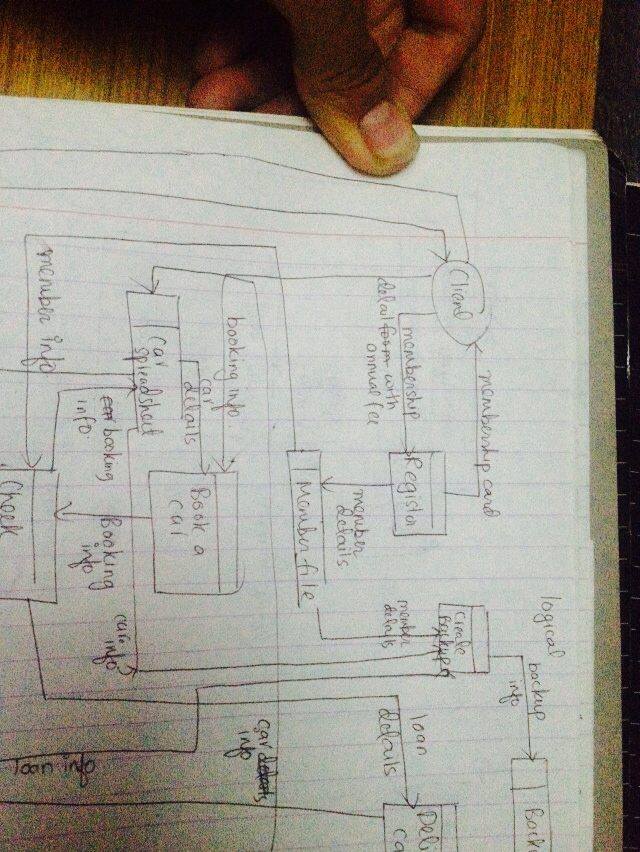 logical
backup
info
membership card
Client
Create
Backup
membership
detail form with
annual fee
Register
member
details
loan
details
member
details
Member file
car details
info
booking info
car
details
Book a
car
car
spreadsheet
car booking
info.
Booking
info
car
info
member info
loan info
Check